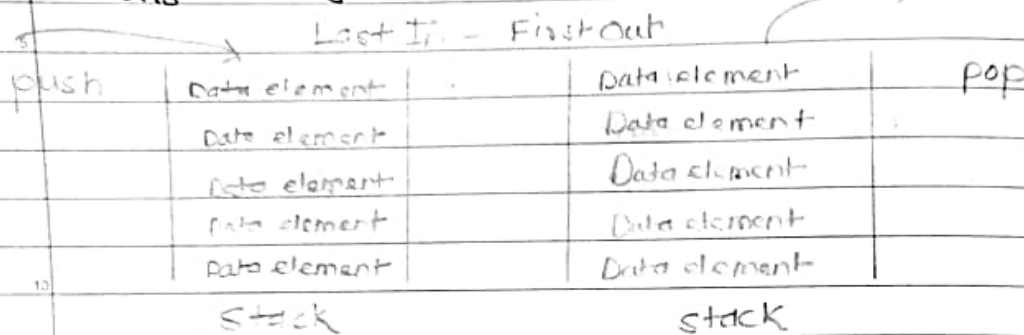 Last In - First Out
push Data element Data element pop
Data element Data element
Data element Data element
Data element Data element
Data element Data element
10
stack stack